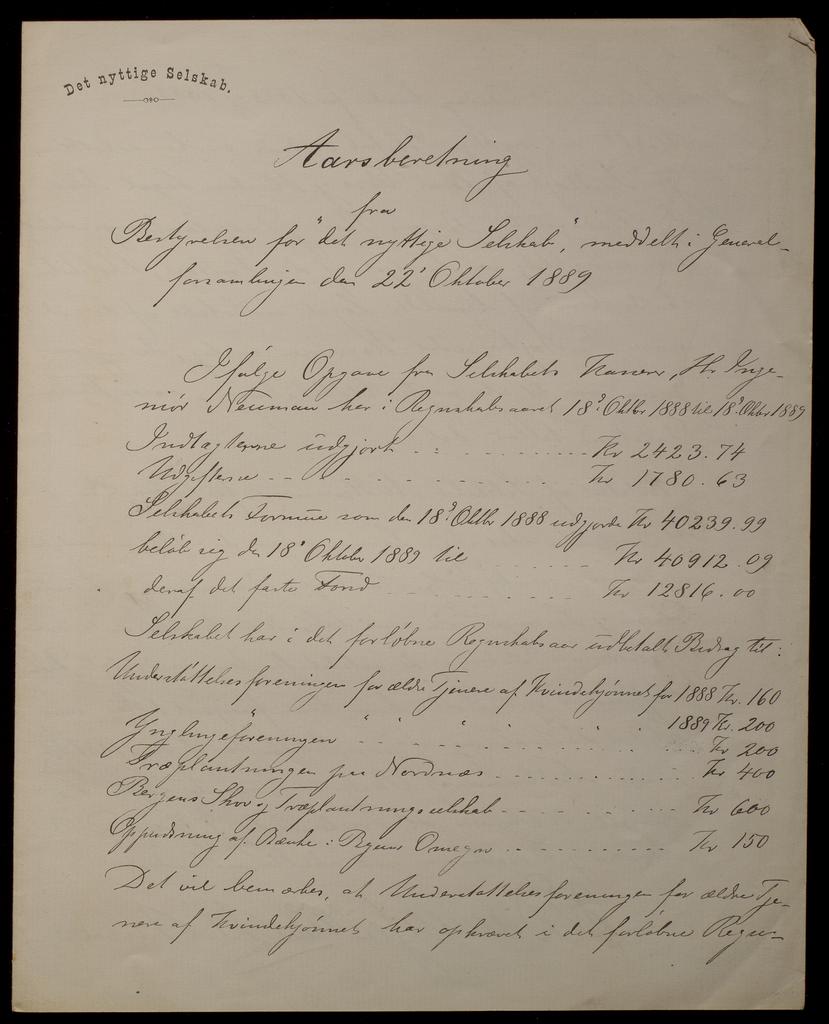 Det nyttige Selskab.
Aarsberetning
fra
Bestyrelsen for "det nyttige Selskab", meddelt i General-
forsamlingen den 22' Oktober 1889
Ifølge Opgave fra Selskabets Kasserer, Hr. Inge-
niør Neuman har i Regnskabsaaret 18' Oktbr 1888 til 18' Oktbr 1889
Indtægterne udgjort Kr 2423.74
Udgifterne Kr 1780.63
Selskabets Formue som den 18' Oktbr 1888 udgjorde Kr 40239.99
beløb sig den 18' Oktober 1889 til Kr 40912.09
deraf det faste Fond Kr 12816.00
Selskabet har i det forløbne Regnskabsaar udbetalt Bidrag til:
Understøttelsesforeningen for ældre Tjenere af Kvindekjønnet for 1888 Kr. 160
" " " " 1889 Kr. 200
Ynglingeforeningen Kr 200
Træplantningen paa Nordnæs Kr 400
Bergens Skov og Træplantningsselskab Kr 600
Oppudsning af Bænke i Byens Omegn Kr 150
Det vil bemærkes, at Understøttelsesforeningen for ældre Tje-
nere af Kvindekjønnet har opkrævet i det forløbne Regn-